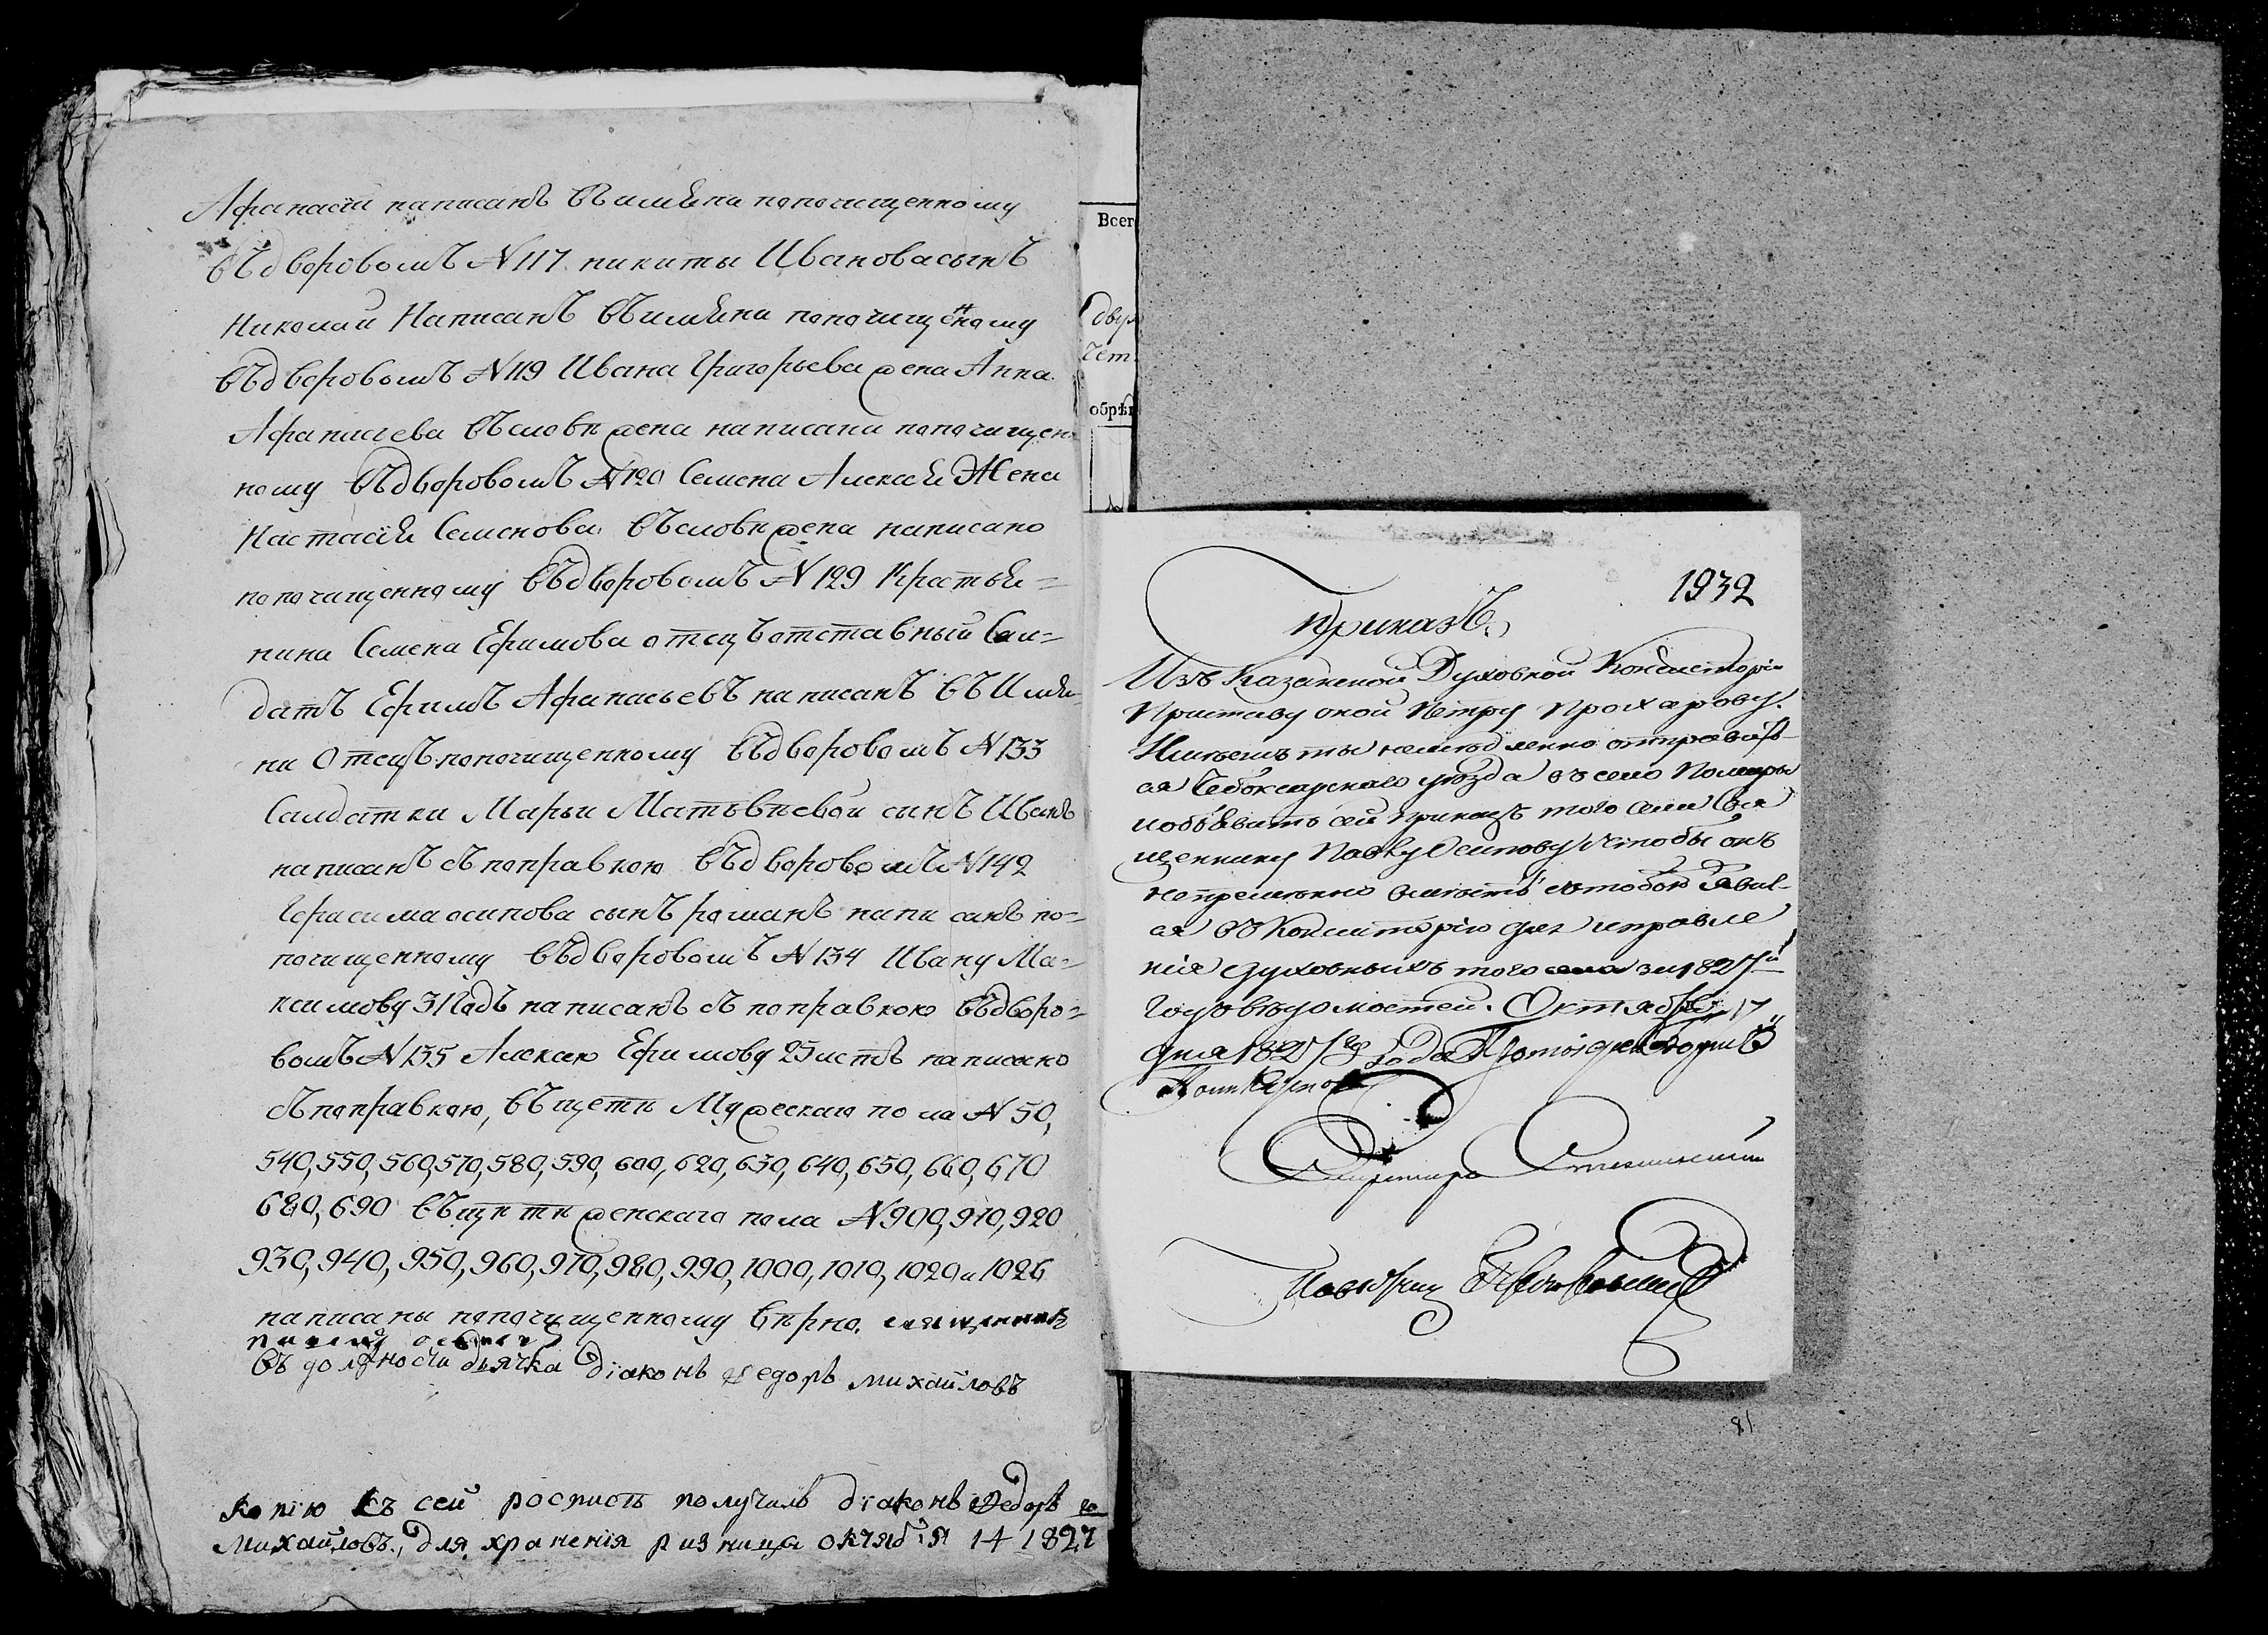 Афанасiй написанъ въ имѣни поп очищенному
въ дворовомъ N 117 никиты Иванова сынъ
Николай Написанъ въ имѣни поп очищенному
въ дворовомъ N 119 Ивана Григорьева жена Анна
Афанасьева въ словѣ жена написана поп очищен
ному въ дворовомъ N 120 Семена Алексѣя Жена
Настасiя Семенова въ словѣ жена написано
поп очищенному въ дворовомъ N 129 Крестья=
нина Семена Ефимова отецъ отставный Сал=
датъ Ефимъ Афанасьевъ написанъ въ Имѣ
ни Отецъ поп очищенному въ дворовомъ N 133
Салдатки Марьи Матвѣевой сынъ Иванъ
написанъ съ поправкою въ дворовомъ N 142
Герасима осипова сынъ романъ написанъ по=
почищенному въ дворовомъ N 154 Ивану Ма=
ксимову 31 Годъ написанъ съ поправкою въ дворо=
вомъ N 155 Алексѣю Ефимову 25 летъ написано
съ поправкою, въ щетѣ Мужескаго пола N 50,
540, 550, 560, 570, 580, 590, 600, 620, 630, 640, 650, 660, 670
680, 690 въ щетѣ женскаго пола N 900, 910, 920
930, 940, 950, 960, 970, 980, 990, 1000, 1010, 1020 и 1026
написаны поп очищенному вѣрно. священникъ
павелъ осиповъ
въ должности дьячка дiаконъ Федоръ михайловъ
Копiю съ сей росписи получилъ дiаконъ Федоръ
Михайловъ, для хранения ризницы октября 14 1827 го
Всег
двух
чет
обрѣт
1932
Приказъ.
Изъ Казанской Духовной Консисторiи
Приставу оной Петру Прохарову.
Имѣешь ты немедленно отправить
ся Чебоксарскаго уѣзда въ село Помары
и объявить сей приказъ того села Свя
щеннику Павлу Осипову чтобы онъ
непременно вместѣ съ тобою явил
ся въ Консисторiю для исправле
нiя духовныхъ того села за 1827й
годъ вѣдомостей. Октября 17
дня 1827 го года Протоiерей
Секретарь
Повытчик
81